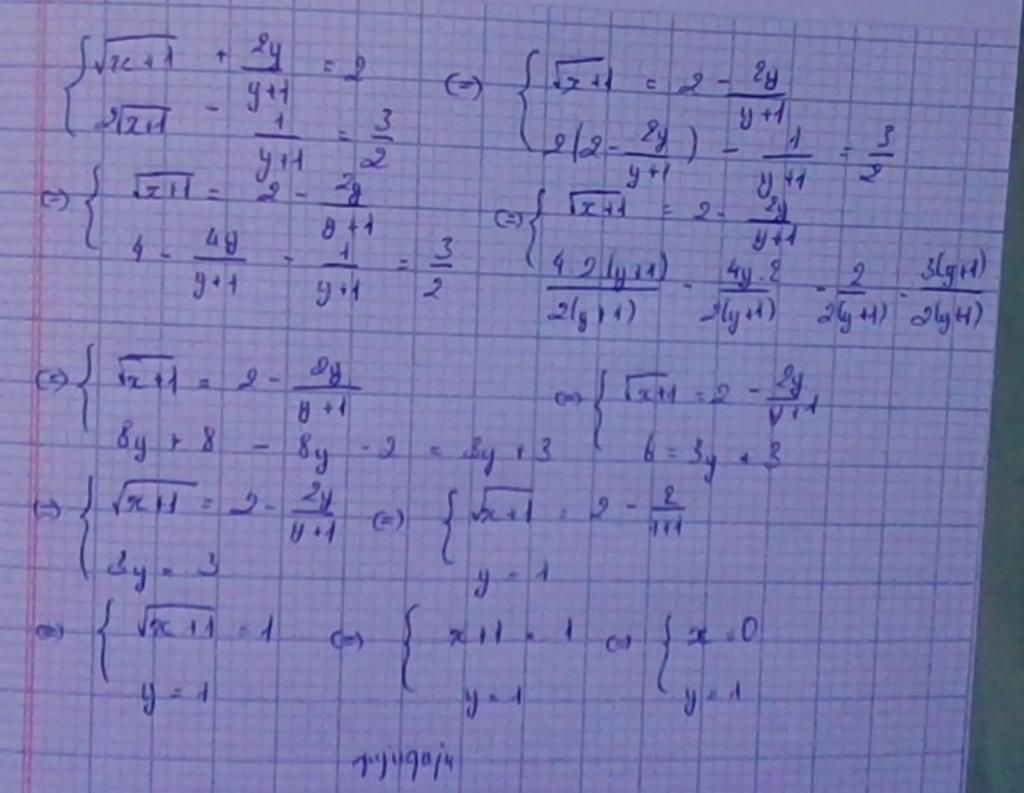 { √(x+1) + 2y/(y+1) = 2 ; 2√(x+1) - 1/(y+1) = 3/2 (=) { √(x+1) = 2 - 2y/(y+1) ; 2(2 - 2y/(y+1)) - 1/(y+1) = 3/2
(=) { √(x+1) = 2 - 2y/(y+1) ; 4 - 4y/(y+1) - 1/(y+1) = 3/2 (=) { √(x+1) = 2 - 2y/(y+1) ; 4.2(y+1)/2(y+1) - 4y.2/2(y+1) - 2/2(y+1) = 3(y+1)/2(y+1)
(=) { √(x+1) = 2 - 2y/(y+1) ; 8y + 8 - 8y - 2 = 3y + 3 (=) { √(x+1) = 2 - 2y/(y+1) ; 6 = 3y + 3
(=) { √(x+1) = 2 - 2y/(y+1) ; 3y = 3 (=) { √(x+1) = 2 - 2/(1+1) ; y = 1
(=) { √(x+1) = 1 ; y = 1 (=) { x+1 = 1 ; y = 1 (=) { x = 0 ; y = 1